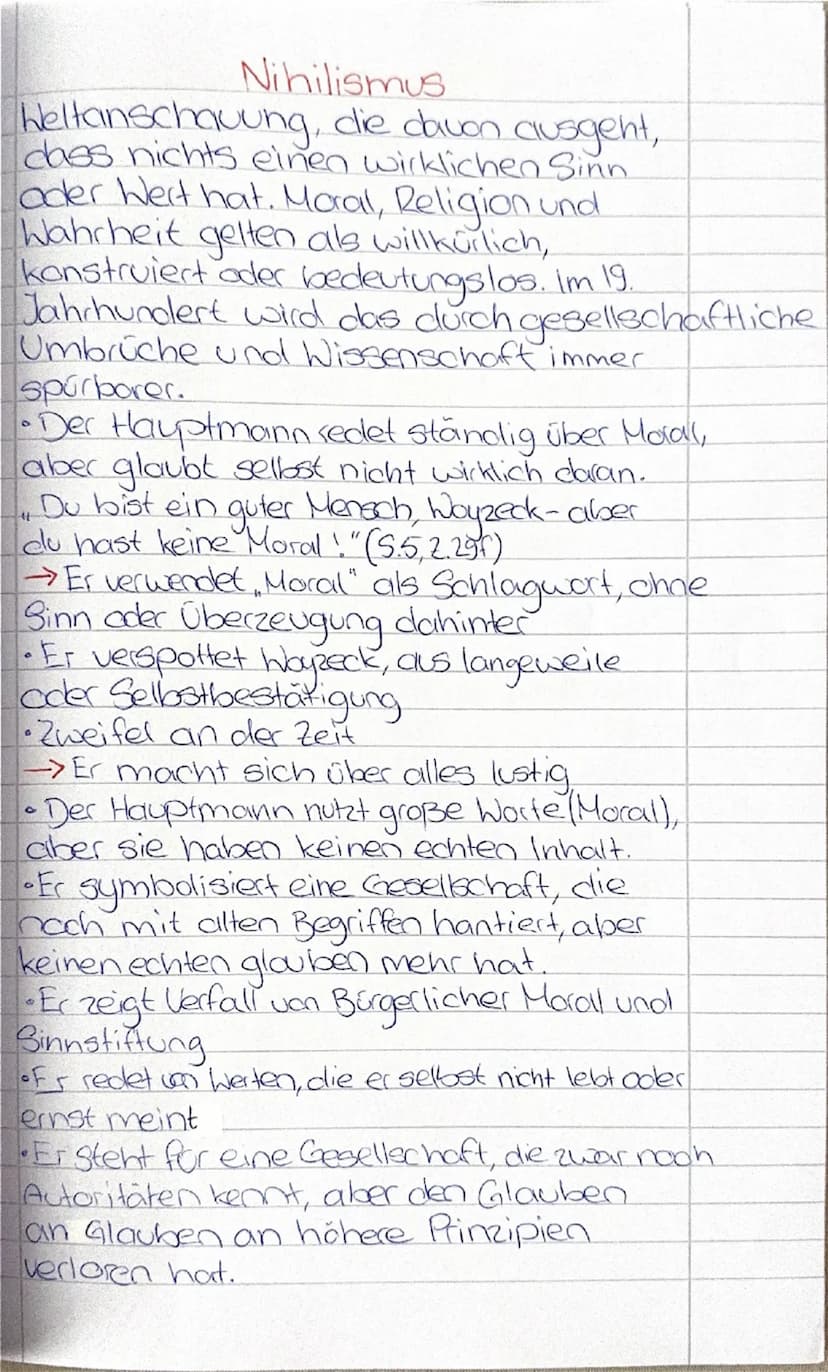 Nihilismus
Weltanschauung, die davon ausgeht,
dass nichts einen wirklichen Sinn
oder Wert hat. Moral, Religion und
Wahrheit gelten als willkürlich,
konstruiert oder bedeutungslos. im 19.
Jahrhundert wird das durch gesellschaftliche
Umbrüche und Wissenschaft immer
spürbarer.
• Der Hauptmann redet ständig über Moral,
aber glaubt selbst nicht wirklich daran.
„Du bist ein guter Mensch, Woyzeck - aber
du hast keine Moral!" (S.5, Z.29f)
→ Er verwendet „Moral" als Schlagwort, ohne
Sinn oder Überzeugung dahinter
• Er verspottet Woyzeck, aus langeweile
oder Selbstbestätigung
• Zweifel an der Zeit
→ Er macht sich über alles lustig
• Der Hauptmann nutzt große Worte (Moral),
aber sie haben keinen echten Inhalt.
• Er symbolisiert eine Gesellschaft, die
noch mit alten Begriffen hantiert, aber
keinen echten glauben mehr hat.
• Er zeigt Verfall von Bürgerlicher Moral und
Sinnstiftung
• Er redet von Werten, die er selbst nicht lebt oder
ernst meint
• Er steht für eine Gesellschaft, die zwar noch
Autoritäten kennt, aber den Glauben
an Glauben an höhere Prinzipien
verloren hat.